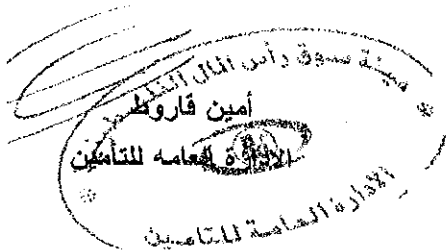 هيئة سوق رأس المال الفلسطينية
أمين قاروط
الادارة العامه للتأمين
الادارة العامة للتامين